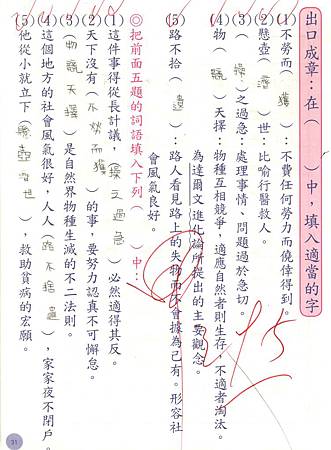 出口成章：在（　）中，填入適當的字
(1)不勞而（獲）：不費任何勞力而僥倖得到。
(2)懸壺（濟）世：比喻行醫救人。
(3)（操）之過急：處理事情、問題過於急切。
(4)物（競）天擇：物種互相競爭，適應自然者則生存，不適者淘汰。
為達爾文進化論所提出的主要觀念。
(5)路不拾（遺）：路人看見路上的失物而不會據為己有。形容社
會風氣良好。
◎把前面五題的詞語填入下列（　）中：
(1)這件事得從長計議，（操之過急）必然適得其反。
(2)天下沒有（不勞而獲）的事，要努力認真不可懈怠。
(3)（物競天擇）是自然界物種生滅的不二法則。
(4)這個地方的社會風氣很好，人人（路不拾遺），家家夜不閉戶。
(5)他從小就立下（懸壺濟世），救助貧病的宏願。
31